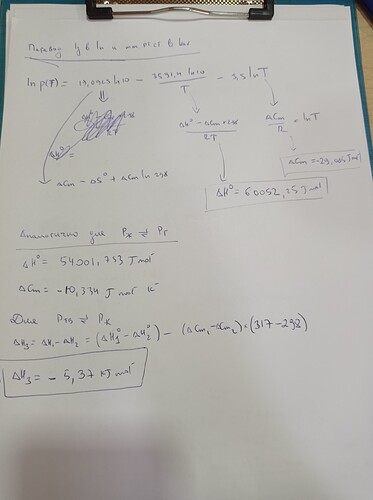 Перевод lg в ln и мм рт.ст в bar
ln p(T) = 19,0925 ln10 - 3591,4 ln10 / T - 3,5 lnT
ΔH° - ΔCm × 298 / RT
ΔCm / R × lnT
ΔH° =
ΔCm - ΔS° + ΔCm ln 298
ΔCm = -29,085 J mol
ΔH° = 60052,25 J mol
Аналогично для Pж ⇌ Pг
ΔH° = 54001,753 J mol
ΔCm = -10,334 J mol K
Для Pтв ⇌ Pж
ΔH3 = ΔH1 - ΔH2 = (ΔH1° - ΔH2°) - (ΔCm1 - ΔCm2) × (317 - 298)
ΔH3 = - 5,37 kJ mol